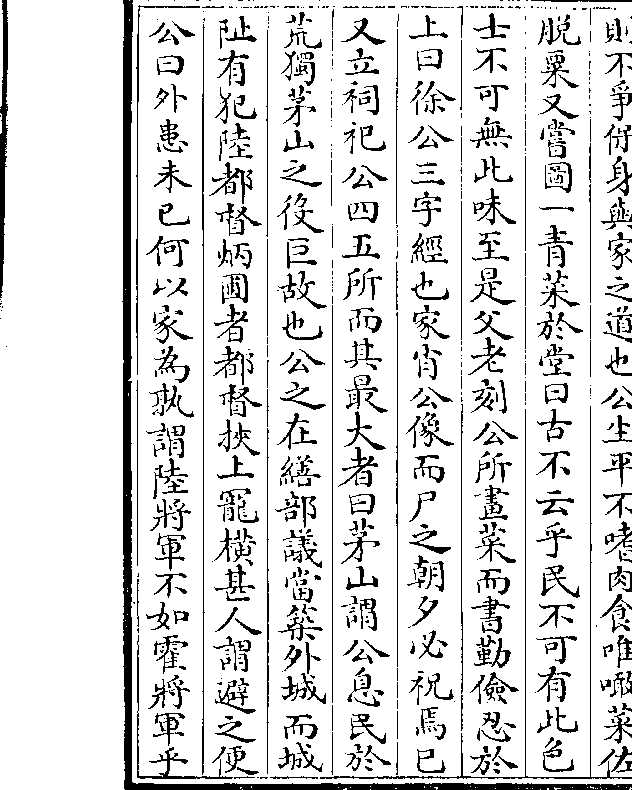 則不爭保身與家之道也公生平不嗜肉食唯噉菜佐
脫粟又嘗圖一青菜於堂曰古不云乎民不可有此色
士不可無此味至是父老刻公所畫菜而書勤儉忍於
上曰徐公三字經也家肖公像而尸之朝夕必祝焉已
又立祠祀公四五所而其最大者曰茅山謂公息民於
荒獨茅山之役巨故也公之在繕部議當築外城而城
阯有犯陸都督炳圃者都督挾上寵橫甚人謂避之便
公曰外患未已何以家為孰謂陸將軍不如霍將軍乎